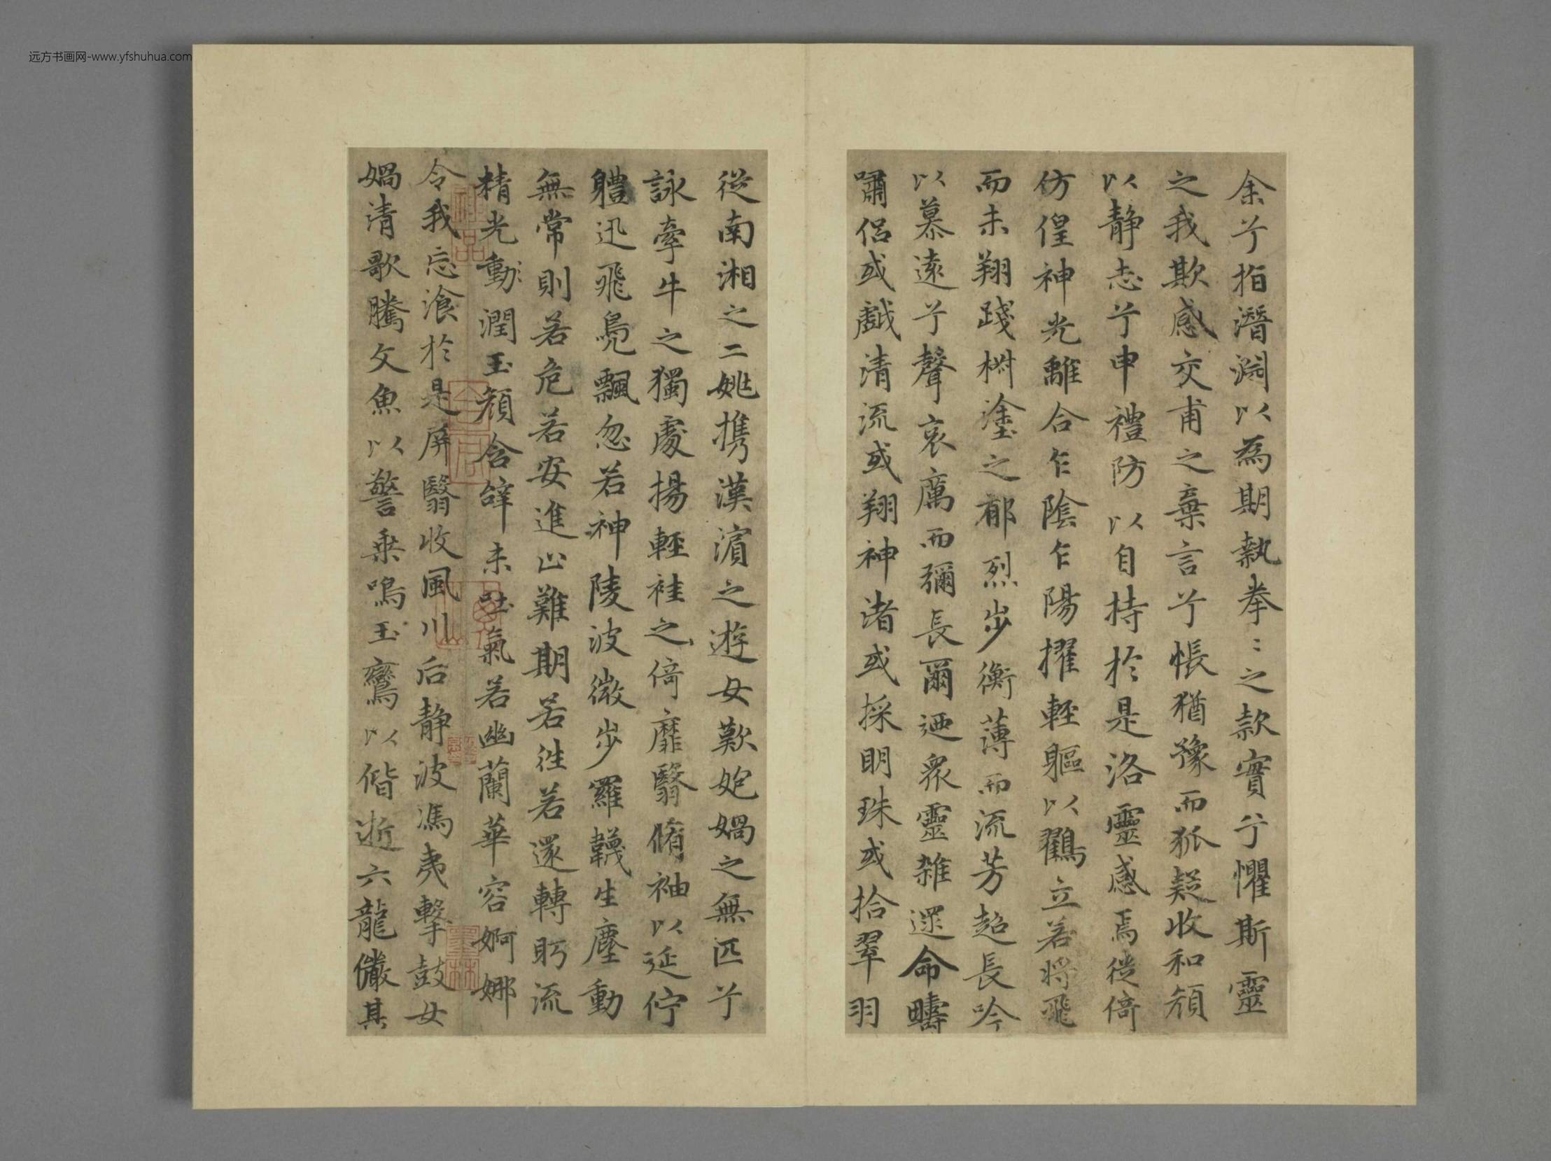 远方书画网-www.yfshuhua.com
余兮指潛淵以為期執拳〻之款實兮懼斯靈
之我欺感交甫之棄言兮悵猶豫而狐疑收和顏
以静志兮申禮防以自持於是洛靈感焉徙倚
仿偟神光離合乍陰乍陽擢輕軀以鸖立若將飛
而未翔踐椒塗之郁烈步衡薄而流芳超長吟
以慕遠兮聲哀厲而彌長爾迺衆靈雜遝命疇
嘯侣或戲清流或翔神渚或採明珠或拾翠羽
從南湘之二姚携漢濵之遊女歎妑媧之無匹兮
詠牽牛之獨處揚輕袿之倚靡翳脩袖以延佇
軆迅飛鳧飄忽若神陵波微步羅韈生塵動
無常則若危若安進止難期若往若還轉眄流
精光動潤玉顏含辝未吐氣若幽蘭華容婀娜
令我忘飡於是屏翳收風川后静波馮夷擊鼓女
媧清歌騰文魚以警乗鳴玉鸞以偕逝六龍儼其